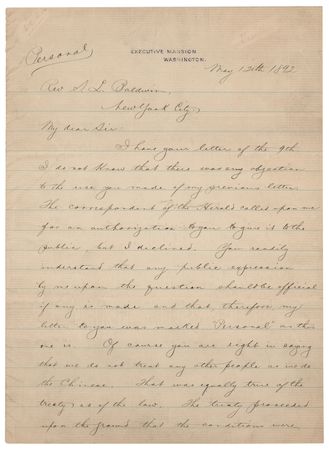 Personal
EXECUTIVE MANSION
WASHINGTON.
May 13th 1892
Rev S. L. Baldwin,
New York City,
My dear Sir:
I have your letter of the 9th
I do not know that there was any objection
to the use you made of my previous letter.
The correspondent of the Herald called upon me
for an authorization to you to give it to the
public, but I declined. You readily
understand that any public expression
by me upon the question should be official
if any is made and that, therefore, my
letter to you was marked "Personal" as this
one is. Of course you are right in saying
that we do not treat any other people as we do
the Chinese. That was equally true of the
treaty as of the law. The treaty proceeded
upon the ground that the conditions were